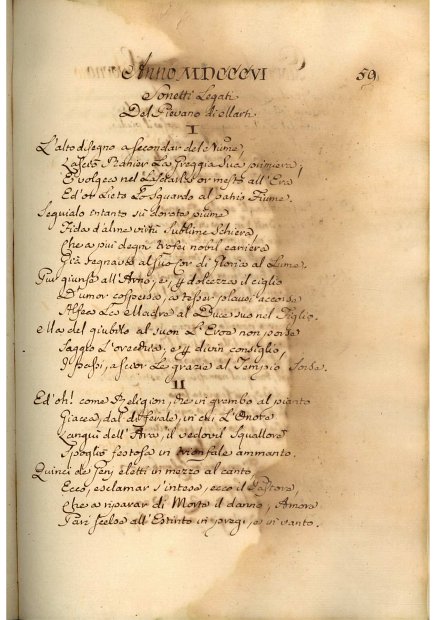 Anno MDCCCVI 59
Sonetti Legati
Del Pievano
I
L'alto disegno a secondar del Nume,
Lasciò Ranier La Greggia sua primiera,
E volgea nel Lasciarla or mesto all'Era
Ed or Lieto Lo Sguardo al patrio Fiume.
Seguialo intanto su dorate piume
Fida d'alme virtù Sublime Schiera,
Che a piu degni trofei nobil cariera
Già segnava al suo cor di Gloria al Lume.
Pur giunse all'Arno, e dolcezza il ciglio
D'umor cosperso, a tesser plausi accorse
Alfea La Madre al Duce suo nel Figlio.
Ella del giubilo al suon L'Eroe non
Saggio L'orecchia, e divin consiglio,
a scior Le grazie al Tempio
II
Ed oh! come Religion, che in grembo al pianto
Giacea, dal dì ferale, in cui L'Onore
Languì dell'Ara, il vedovil Squallore
Spogliò festosa in trionfale ammanto.
Quinci de Geni eletti in mezzo al canto
Ecco, esclamar s'intese, ecco il Pastore,
Che a riparar di Morte il danno, Amore
Pari scelse all'Estinto in pregi, e in vanto.